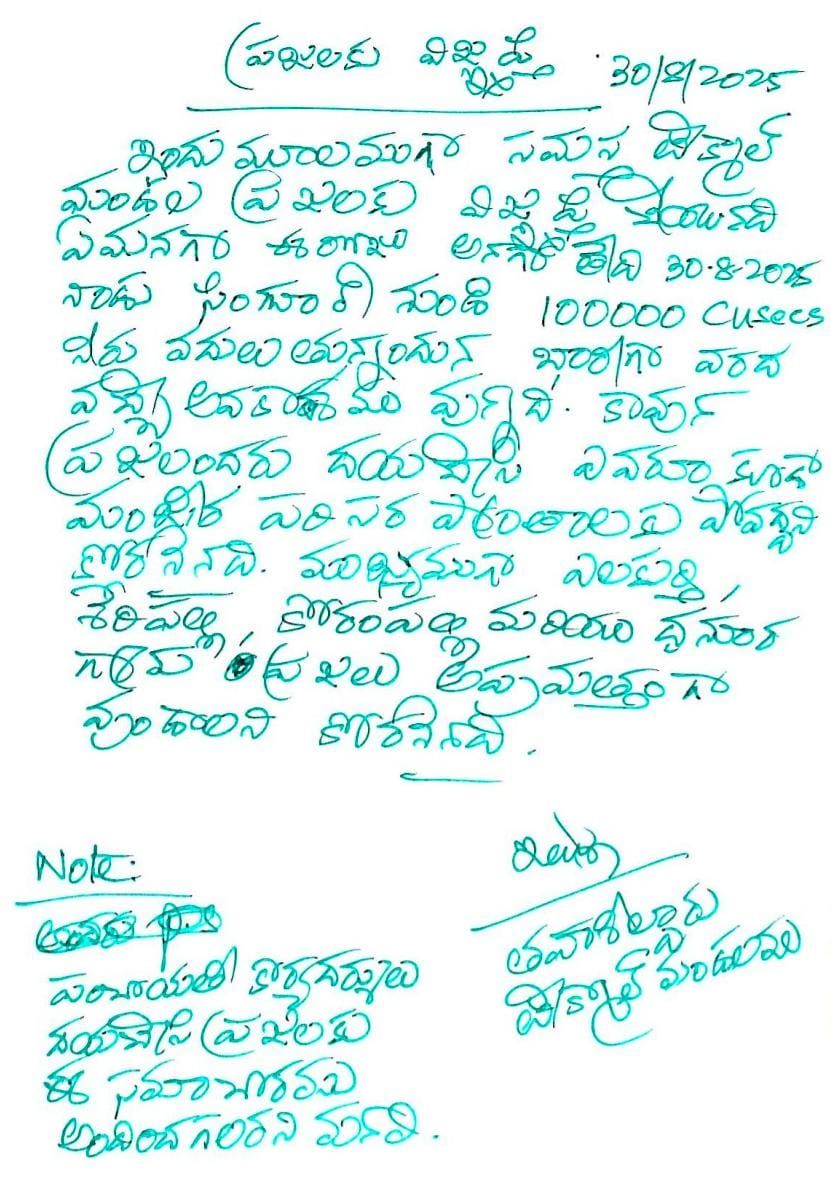 ప్రజలకు విజ్ఞప్తి. 30/8/2025
ఇందు మూలముగా సమస్త టేక్మాల్
మండల ప్రజలకు విజ్ఞప్తి చేయునది
ఏమనగా ఈ రోజు అనగా తేది 30-8-2025
నాడు సింగూర్ నుండి 100000 Cusecs
నీరు వదులుతున్నందున భారీగా వరద
వచ్చే అవకాశము వున్నది. కావున
ప్రజలందరు దయచేసి ఎవరూ కూడా
మంజీర పరిసర ప్రాంతాలకు పోవద్దని
కోరనైనది. ముఖ్యముగా ఎలకుర్తి,
శేరిపల్లి, కోరంపల్లి మరియు ధనూర
గ్రామ ప్రజలు అప్రమత్తంగా
వుండాలని కోరనైనది.
Note:
పంచాయతీ కార్యదర్శులు
దయచేసి ప్రజలకు
ఈ సమాచారము
అందించగలరని మనవి.
ఇట్లు
తహశీల్దారు
టేక్మాల్ మండలము